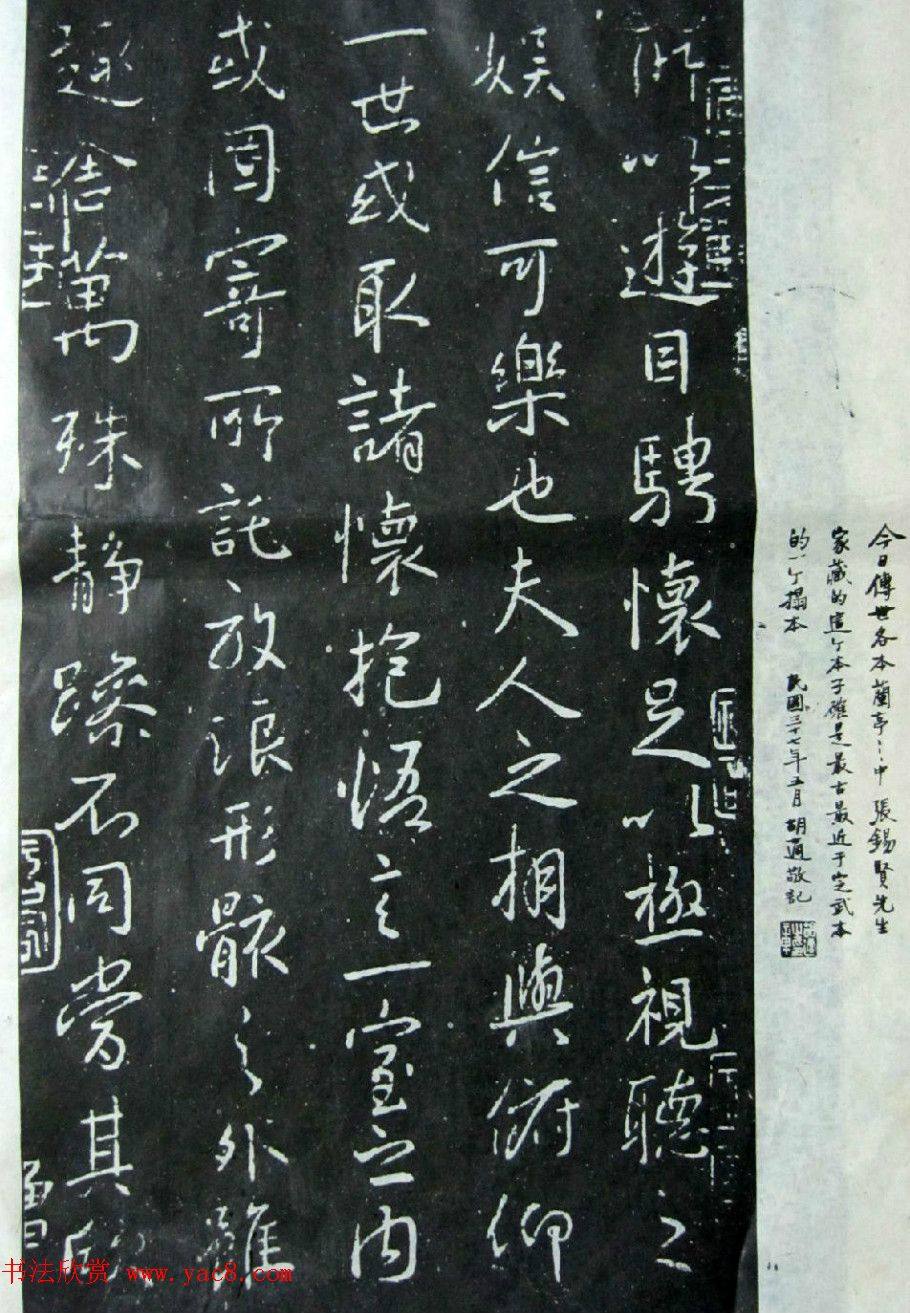 今日傳世各本蘭亭之中張錫賢先生
家藏的這个本子確是最古最近于定武本
的一个搨本 民國三十七年五月 胡適敬記
所以遊目騁懷足以極視聽之
娛信可樂也夫人之相與俯仰
一世或取諸懷抱悟言一室之内
或因寄所託放浪形骸之外雖
趣舍萬殊靜躁不同當其欣
书法欣赏 www.yac8.com